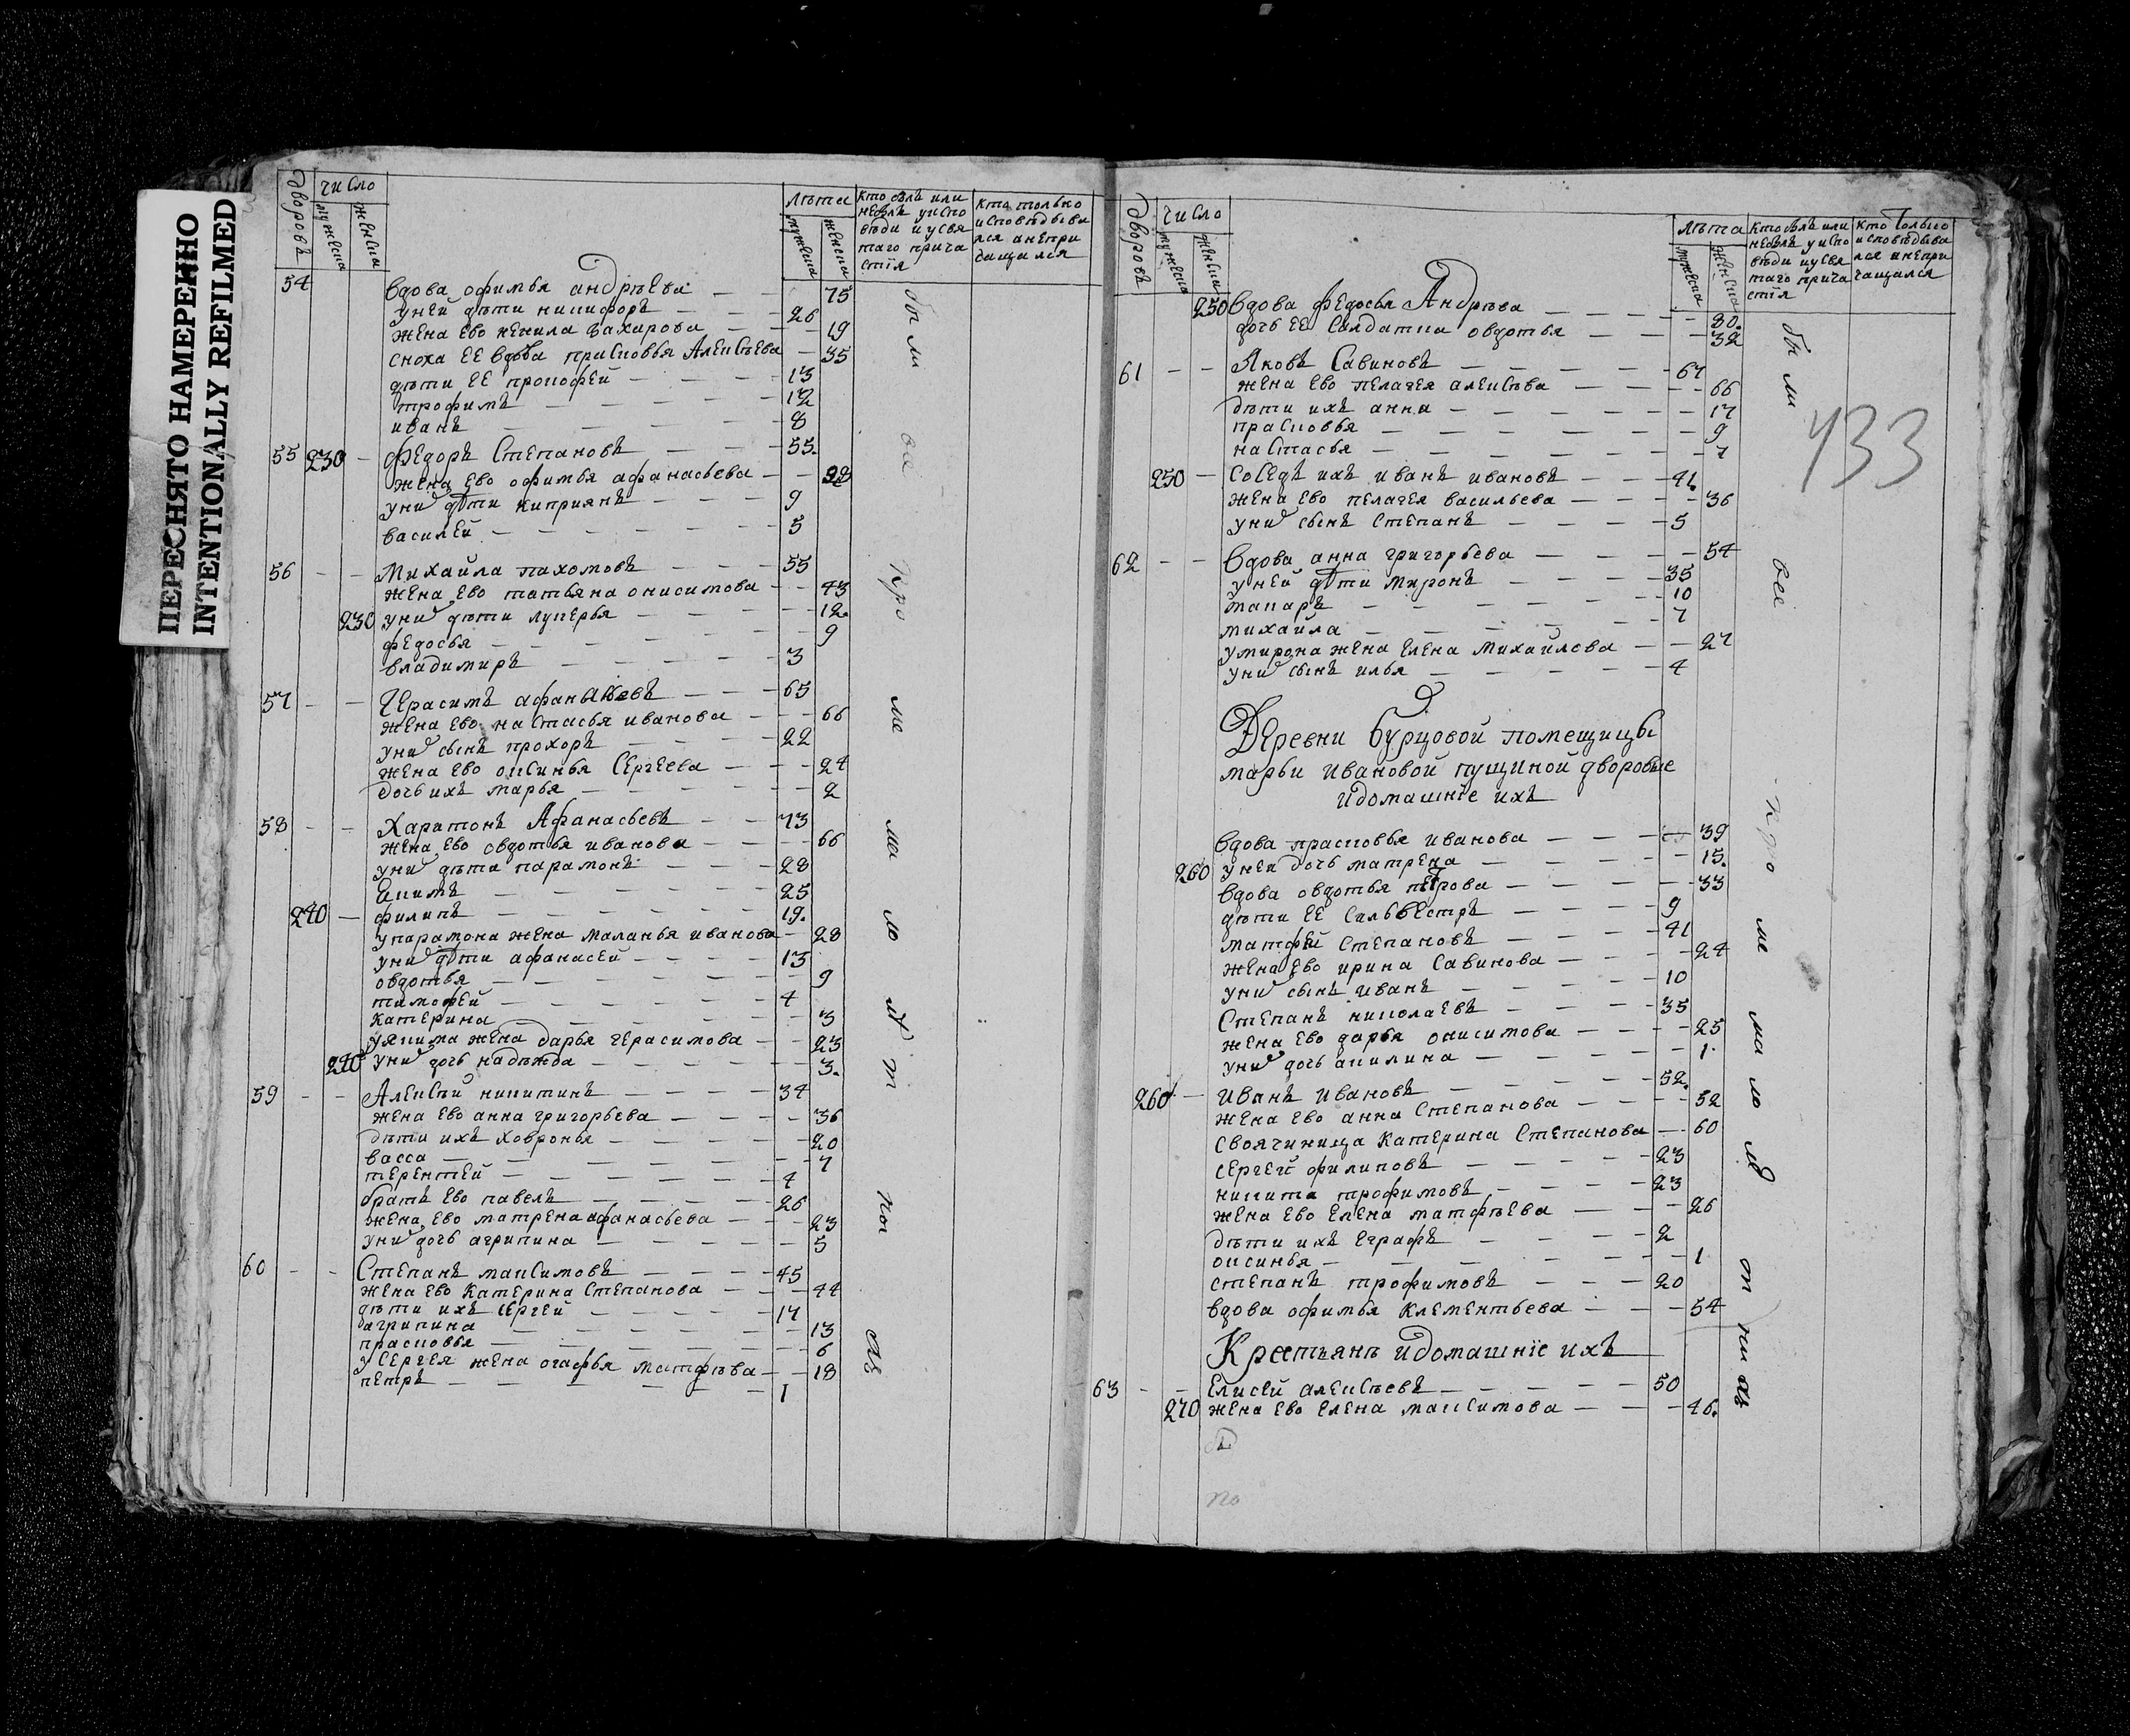 ПЕРЕСНЯТО НАМЕРЕННО
INTENTIONALLY REFILMED
дворовъ
число
мужеска
женска
лѣта
мужеска
женска
кто былъ или
небылъ уиспо
вѣди иусвя
таго прича
стїя
кто только
исповѣдыва
лся анепри
чащался
54 вдова офимья андрѣева 75
уней дѣти никифоръ 26
жена ево ненила захарова 19
сноха ее вдова прасковья Алексѣева 35
дѣти ее прокофей 13
трофимъ 12
иванъ 8
55 230 Федоръ Степановъ 55
жена ево офимья афанасьева
уних дѣти киприянъ 9
василей 5
56 Михайла пахомовъ 55
жена ево татьяна онисимова 43
230 уних дѣти лукерья 12
федосья 9
владимиръ 3
57 Герасимъ афанасьевъ 65
жена ево настасья иванова 66
уних сынъ прохоръ 22
жена ево оксинья Сергеева 24
дочь ихъ марья 2
58 Харитонъ Афанасьевъ 73
жена ево овдотья иванова 66
уних дѣти парамонъ 28
Екимъ 25
240 филипъ 19
упарамона жена маланья иванова 28
уних дѣти афанасей 13
овдотья 9
тимофей 4
катерина 3
уякима жена дарья герасимова 23
240 уних дочь надѣжда 3
59 Алексѣй никитинъ 34
жена ево анна григорьева 36
дѣти ихъ ховронья 20
васса 7
терентей 4
братъ ево павелъ 26
жена ево матрена афанасьева 23
уних дочь агрипина 5
60 Степанъ максимовъ 45
жена ево катерина Степанова 44
дѣти ихъ сергей 17
агрипина 13
прасковья 6
усергея жена огафья матфѣва 18
петръ 1
бы ли
все
дворовъ
число
мужеска
женска
лѣта
мужеска
женска
кто былъ или
небылъ уиспо
вѣди иусвя
таго прича
стїя
кто только
исповѣдыва
лся анепри
чащался
250 вдова федосья Андрѣва 80
дочь ее Салдатка овдотья 32
61 Яковъ Савиновъ 67
жена ево пелагея алексѣва 66
дѣти ихъ анна 17
прасковья 9
настасья 7
250 Соседъ ихъ иванъ ивановъ 41
жена ево пелагея васильева 36
уних сынъ Степанъ 5
62 Вдова анна григорьева 54
уней дѣти миронъ 35
макаръ 10
михайла 7
умирона жена елена михайлова 27
уних сынъ илья 4
Деревни бурцовой помещицы
марьи ивановой пущиной дворовые
идомашнїе ихъ
вдова прасковья иванова 39
260 уней дочь матрена 15
вдова овдотья петрова 33
дѣти ее Сильвестръ 9
матфей степановъ 41
жена ево ирина Савинова 24
уних сынъ иванъ 10
Степанъ николаевъ 35
жена ево дарья онисимова 25
уних дочь акилина 1
260 иванъ ивановъ 52
жена ево анна Степанова 52
своячиница катерина Степанова 60
сергей филиповъ 23
никита трофимовъ 23
жена ево елена матфѣева 26
дѣти ихъ еграфъ 2
оксинья 1
степанъ трофимовъ 20
вдова офимья клементьева 54
Крестьянъ идомашнїе ихъ
63 Елисей алексѣевъ 50
270 жена ево елена максимова 46
бы ли
все
433
по